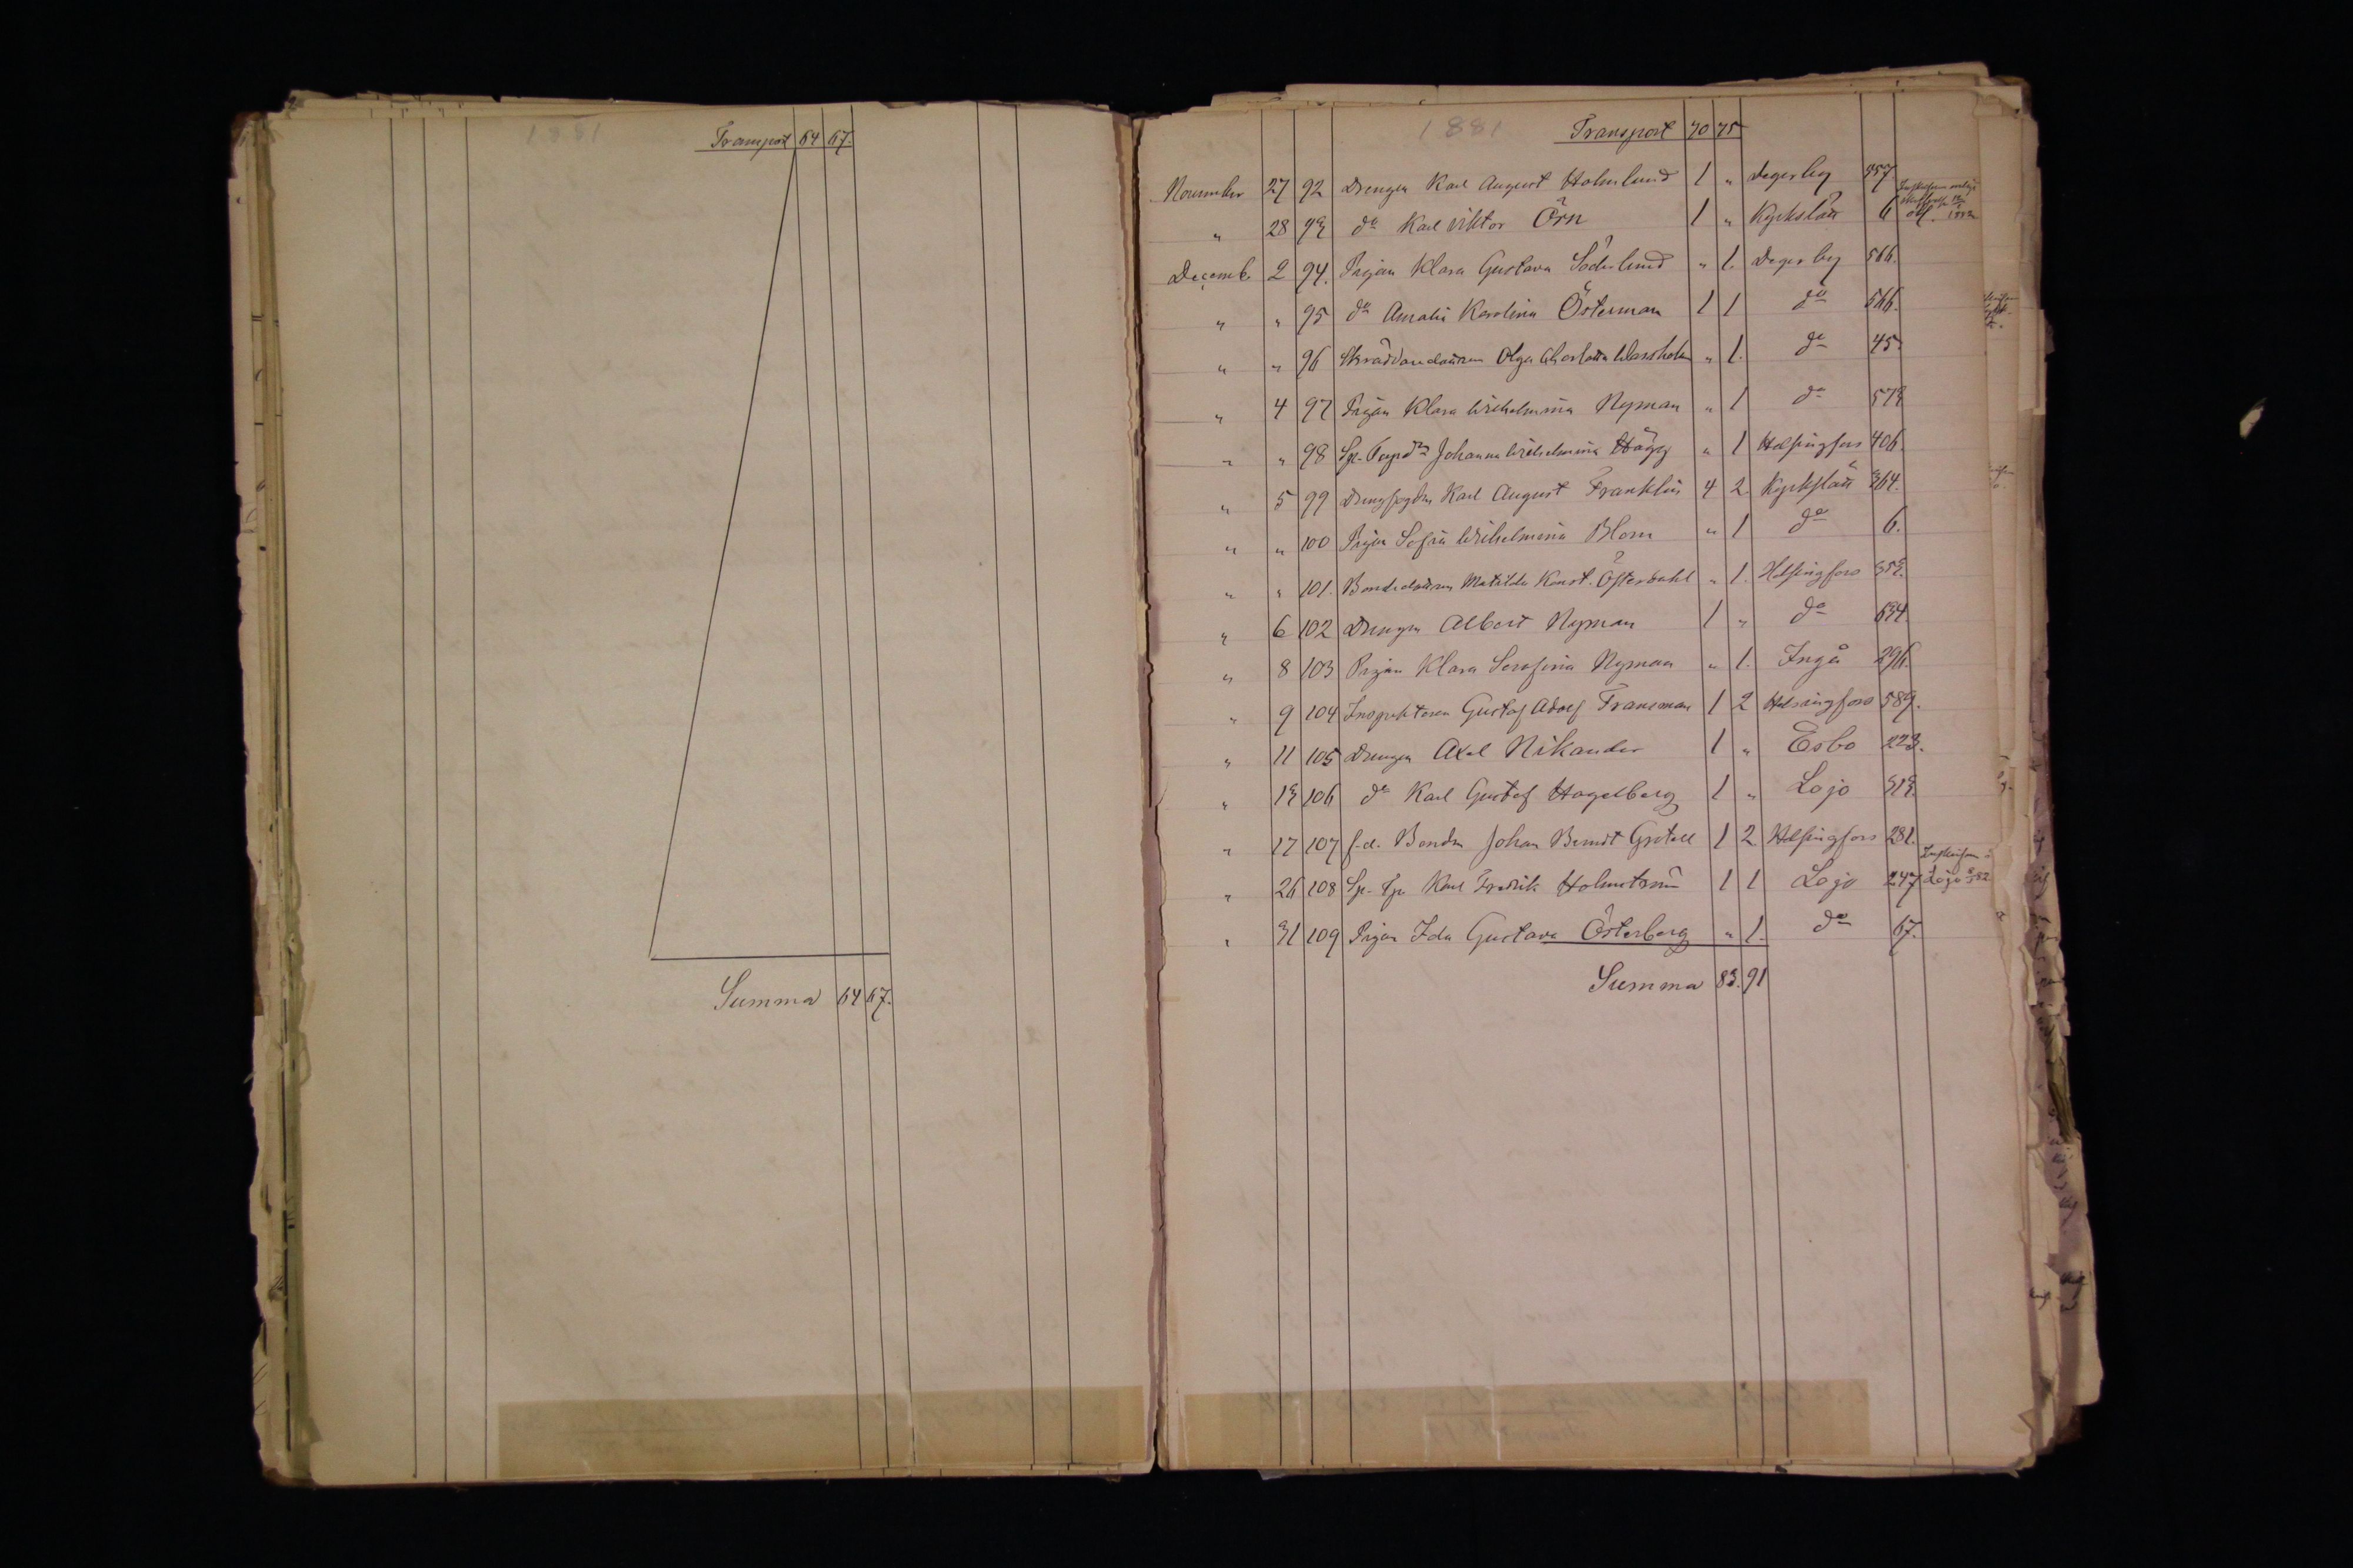 1881
Transport 64 67.
Summa 64 67.
1881 Transport 70 75
November 27 92 Drengen Karl August Holmlund 1 " Degerby 957
" 28 93 do Karl Viktor Örn 1 " Kyrkslätt 6
Decemb. 2 94. Pigan Klara Gustava Söderlund " 1. Degerby 566.
" " 95 do Amalia Karolina Österman 1 1 do 566.
" " 96 Olga Charlotta " 1. do 45.
" 4 97 Pigan Klara Wilhelmina Nyman " 1 do 573
" " 98 Johanna Wilhelmina Hägg " 1 Helsingfors 406.
" 5 99 Karl August Franklin 4 2. Kyrkslätt 364.
" " 100 Pigan Sofia Wilhelmina Blom " 1 do 6.
" " 101. Bondedottren Matilda Konst. Österdahl " 1. Helsingfors 353.
" 6 102 Drengen Albert Nyman 1 " do 634.
" 8 103 Pigan Klara Serafina Nyman " 1. Ingå 296.
" 9 104 Inspektoren Gustaf Adolf Fransman 1 2 Helsingfors 589.
" 11 105 Drengen Axel Nikander 1 " Esbo 223.
" 13 106 do Karl Gustaf Hagelberg 1 " Lojo 313.
" 17 107 f.d. Bonden Johan Berndt Grotell 1 2. Helsingfors 281.
" 26 108 Karl Fredrik Holmström 1 1 Lojo 247 Lojo
" 31 109 Pigan Ida Gustava Österberg " 1. do 67.
Summa 83. 91